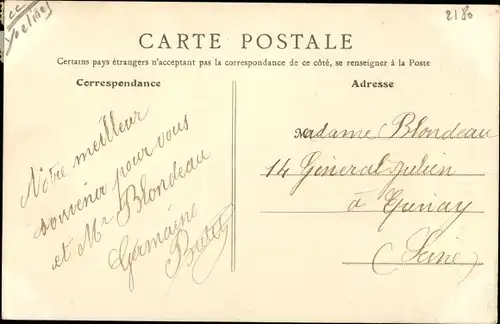 cc
Yvelines
2180
CARTE POSTALE
Certains pays étrangers n'acceptant pas la correspondance de ce côté, se renseigner à la Poste
Correspondance
Notre meilleur
souvenir pour vous
et Mr Blondeau
Germaine
Adresse
Madame Blondeau
14 Général Julien
à
(Seine)